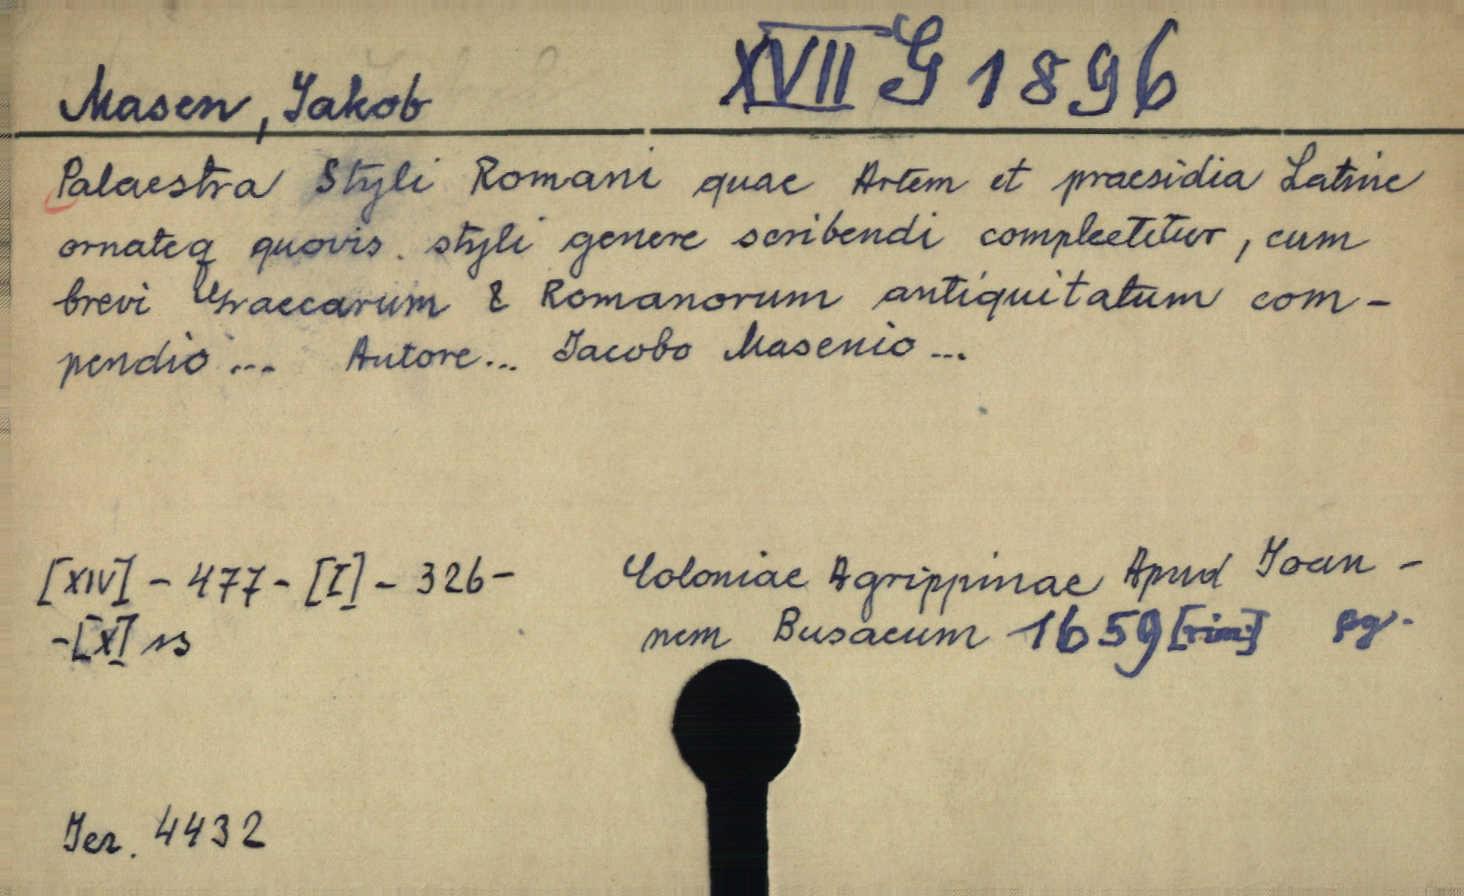 Masen, Jakob XVII G 1896
Palaestra Styli Romani quae Artem et praesidia Latine
ornateq quovis styli genere scribendi complectitur, cum
brevi Graecarum & Romanorum antiquitatum com-
pendio ... Autore ... Jacobo Masenio ...
[XIV] - 477 - [I] - 326 - Coloniae Agrippinae Apud Joan-
-[X] ss nem Busaeum 1659
Jez. 4432